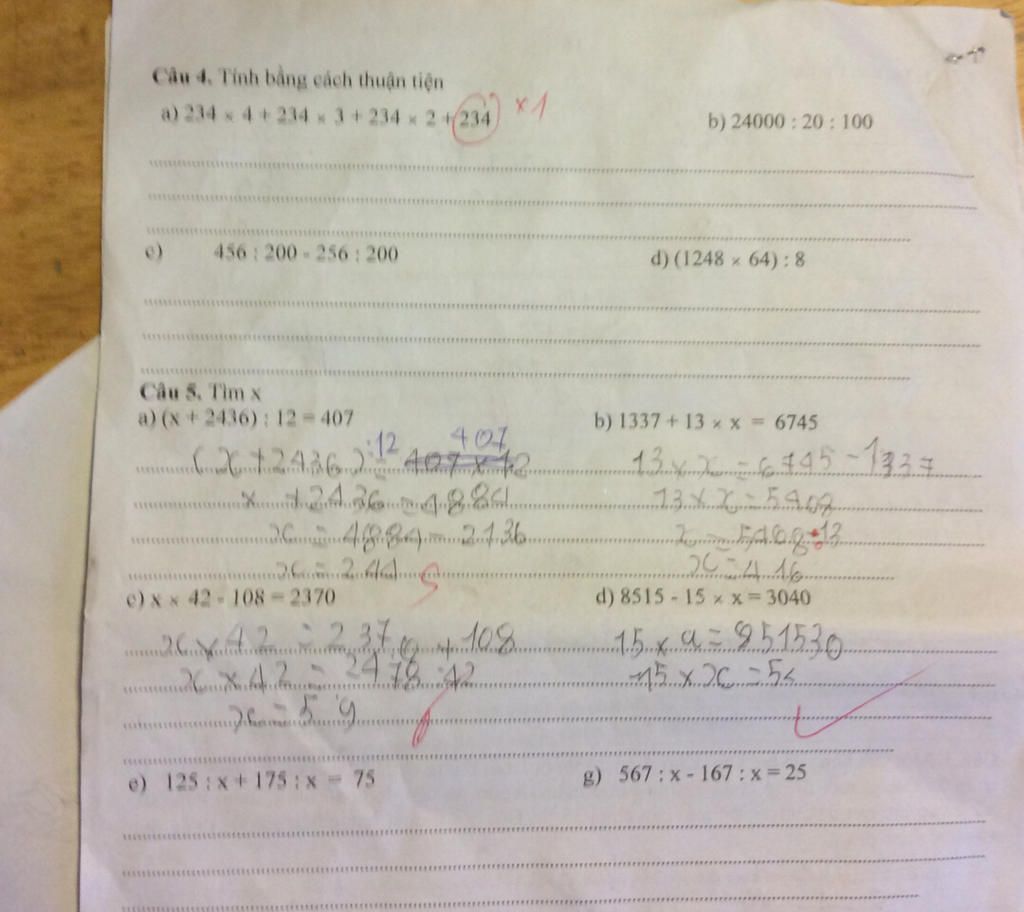 Câu 4. Tính bằng cách thuận tiện
a) 234 × 4 + 234 × 3 + 234 × 2 + 234 ×1
b) 24000 : 20 : 100
c) 456 : 200 - 256 : 200
d) (1248 × 64) : 8
Câu 5. Tìm x
a) (x + 2436) : 12 = 407
b) 1337 + 13 × x = 6745
:12 407
(x + 2436) = 407 x 12
13 x x = 6745 - 1337
x + 2436 = 4884
13 x x = 5408
x = 4884 - 2436
x = 5408 : 13
x = 244
x = 416
c) x × 42 - 108 = 2370
d) 8515 - 15 × x = 3040
x x 42 = 2370 + 108
15 x a = 851530
x x 42 = 2478 : 42
15 x x = 54
x = 59
e) 125 : x + 175 : x = 75
g) 567 : x - 167 : x = 25